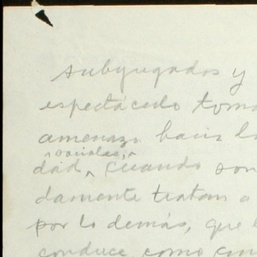 subyugados y
espectáculo toma
amenaza hacia la
sociales,
dad, cuando son
damente tratan a
por lo demás, que
conduce como con